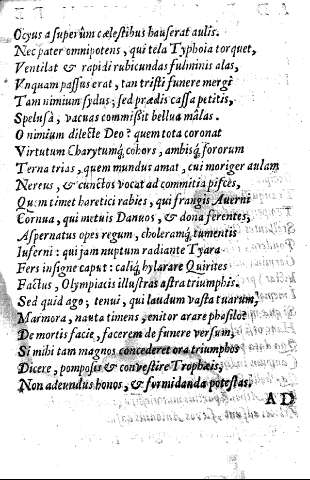 Ocyus a superûm cælestibus hauserat aulis.
Nec pater omnipotens, qui tela Typhoia torquet,
Ventilat & rapidi rubicundas fulminis alas,
Vnquam passus erat, tan tristi funere mergi
Tam nimium sydus; sed prædis cassa petitis,
Spelusâ, vacuas commisit bellua mâlas.
O nimium dilecte Deo? quem tota coronat
Virtutum Charytumq́; cohors, ambisq́; sororum
Terna trias, quem mundus amat, cui moriger aulam
Nereus, & cunctos vocat ad commitia pisces,
Quem timet haretici rabies, qui frangis Auerni
Cornua, qui metuis Danuos, & dona ferentes,
Aspernatus opes regum, choleramq́; tumentis
Iuferni: qui jam nuptum radiante Tyara
Fers insigne caput: caliq́; hylarare Quirites
Factus, Olympiacis illustras astra triumphis.
Sed quid ago; tenui, qui laudum vasta tuarum,
Marmora, nauta timens, enitor arare phaselo?
De mortis facie, facerem de funere versum,
Si mihi tam magnos concederet ora triumphos
Dicere, pomposis & convestire Trophæis,
Non adeundus honos, & formidanda potestas.
AD